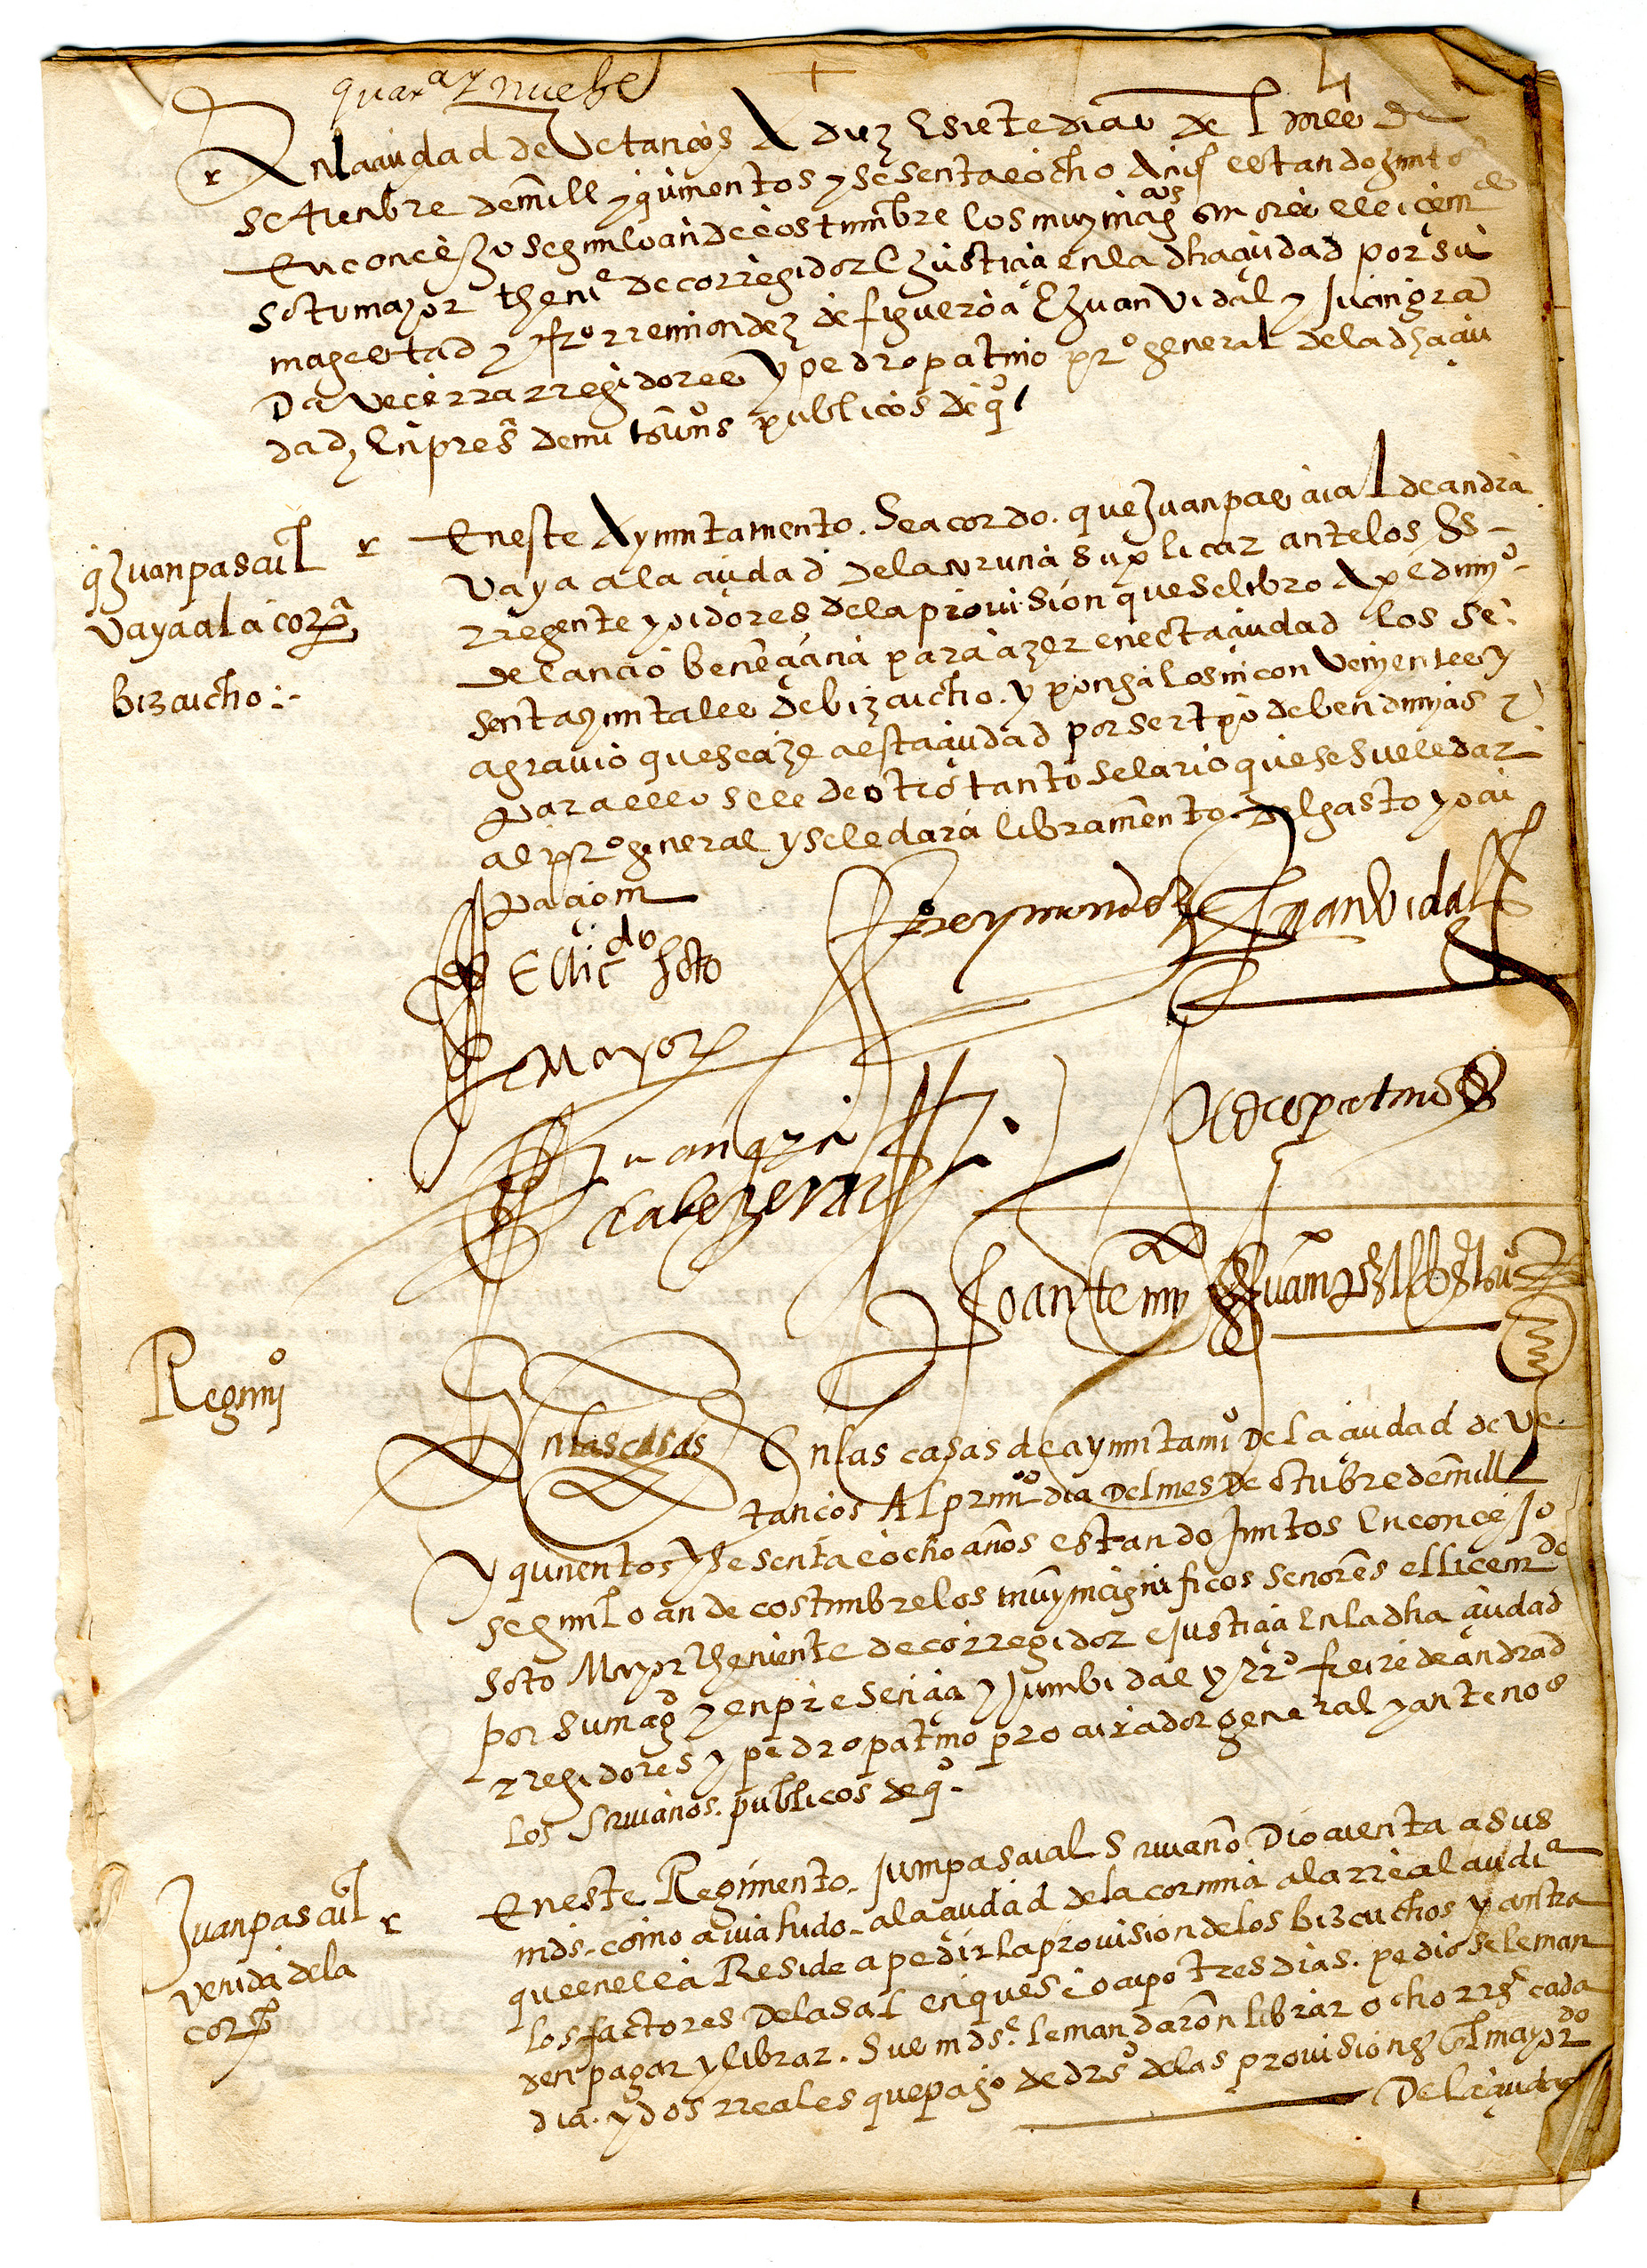 quarª y nuebe
4
En la ciudad de Vetanços A diez E siete dias del mes de
setienbre de mill y quinientos y sesenta e ocho Anos estando juntos
En concejo segun lo an de costumbre los muy magcos sres el licendo
sotomayor thenie de corregidor E justicia en la dha ciudad por su
magestad y Rº rremondez de figueroa E Juan Vidal y Juan gra
Da vecerra rregidores y pedro patino prº general de la dha ciu
dad, En pres de mi scrivos publicos de qº
q Juan pascual
vaya a la corª
bizcucho
En este Ayuntamento. Se acordo. que Juan pascual de andra
vaya a la ciudad de la coruna suplicar ante los Ss
rregente y oidores de la provision que se libro A pedimyº
de para azer en esta ciudad los se
senta quintales de bizcucho. y ponga los inconvenyentes y
agravio que se aze a esta ciudad por ser tpo de bendimyas y
para ello se le de otro tanto selario que se suele dar
al prº general y se le dara libramento del gasto y ocu
pacion
El licdo soto
mayor
Rreymondez
Juan Vidal
Juan gra
da bezerra
Pedro patino
Regimyº
En las casas En las casas de ayuntamiº De la ciudad de ve
tancos Al primº dia Del mes De otubre de mill
y quinentos y sesenta e ocho anos estando juntos En concejo
segun lo an de costumbre los muy magnificos senores el licendo
soto Mayor theniente de corregidor e justicia En la dha ciudad
por su magd y en presencia y Jum bidal y Rº freire de andrad
rregidores y pedro patino procurador general y ante nos
los scrivanos. publicos de qº
Juan pascual
venida de la
corª
En este Regimento. Jum pascual Scrivano Dio cuenta a sus
mds. como avia hido a la ciudad de la coruna a la rreal audiª
que en ella Reside a pedir la provision de los bizcuchos y contra
los factores De la sal en que se ocupo tres dias. pedio se le man
den pagar y librar. Sus mds. le mandaron librar ocho rrs cada
dia. y dos rreales que pago de drs de las provisiones El mayordo
De la ciudad